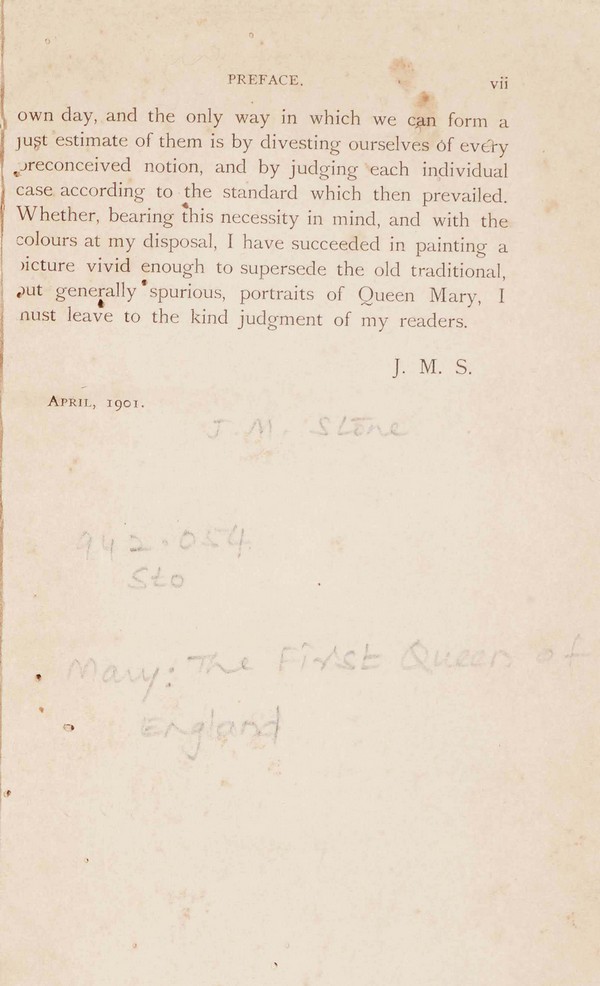 PREFACE. vii
own day, and the only way in which we can form a
just estimate of them is by divesting ourselves of every
preconceived notion, and by judging each individual
case according to the standard which then prevailed.
Whether, bearing this necessity in mind, and with the
colours at my disposal, I have succeeded in painting a
picture vivid enough to supersede the old traditional,
but generally spurious, portraits of Queen Mary, I
must leave to the kind judgment of my readers.
J. M. S.
April, 1901.
J. M. Stone
942.054
Sto
Mary: The First Queen of
England